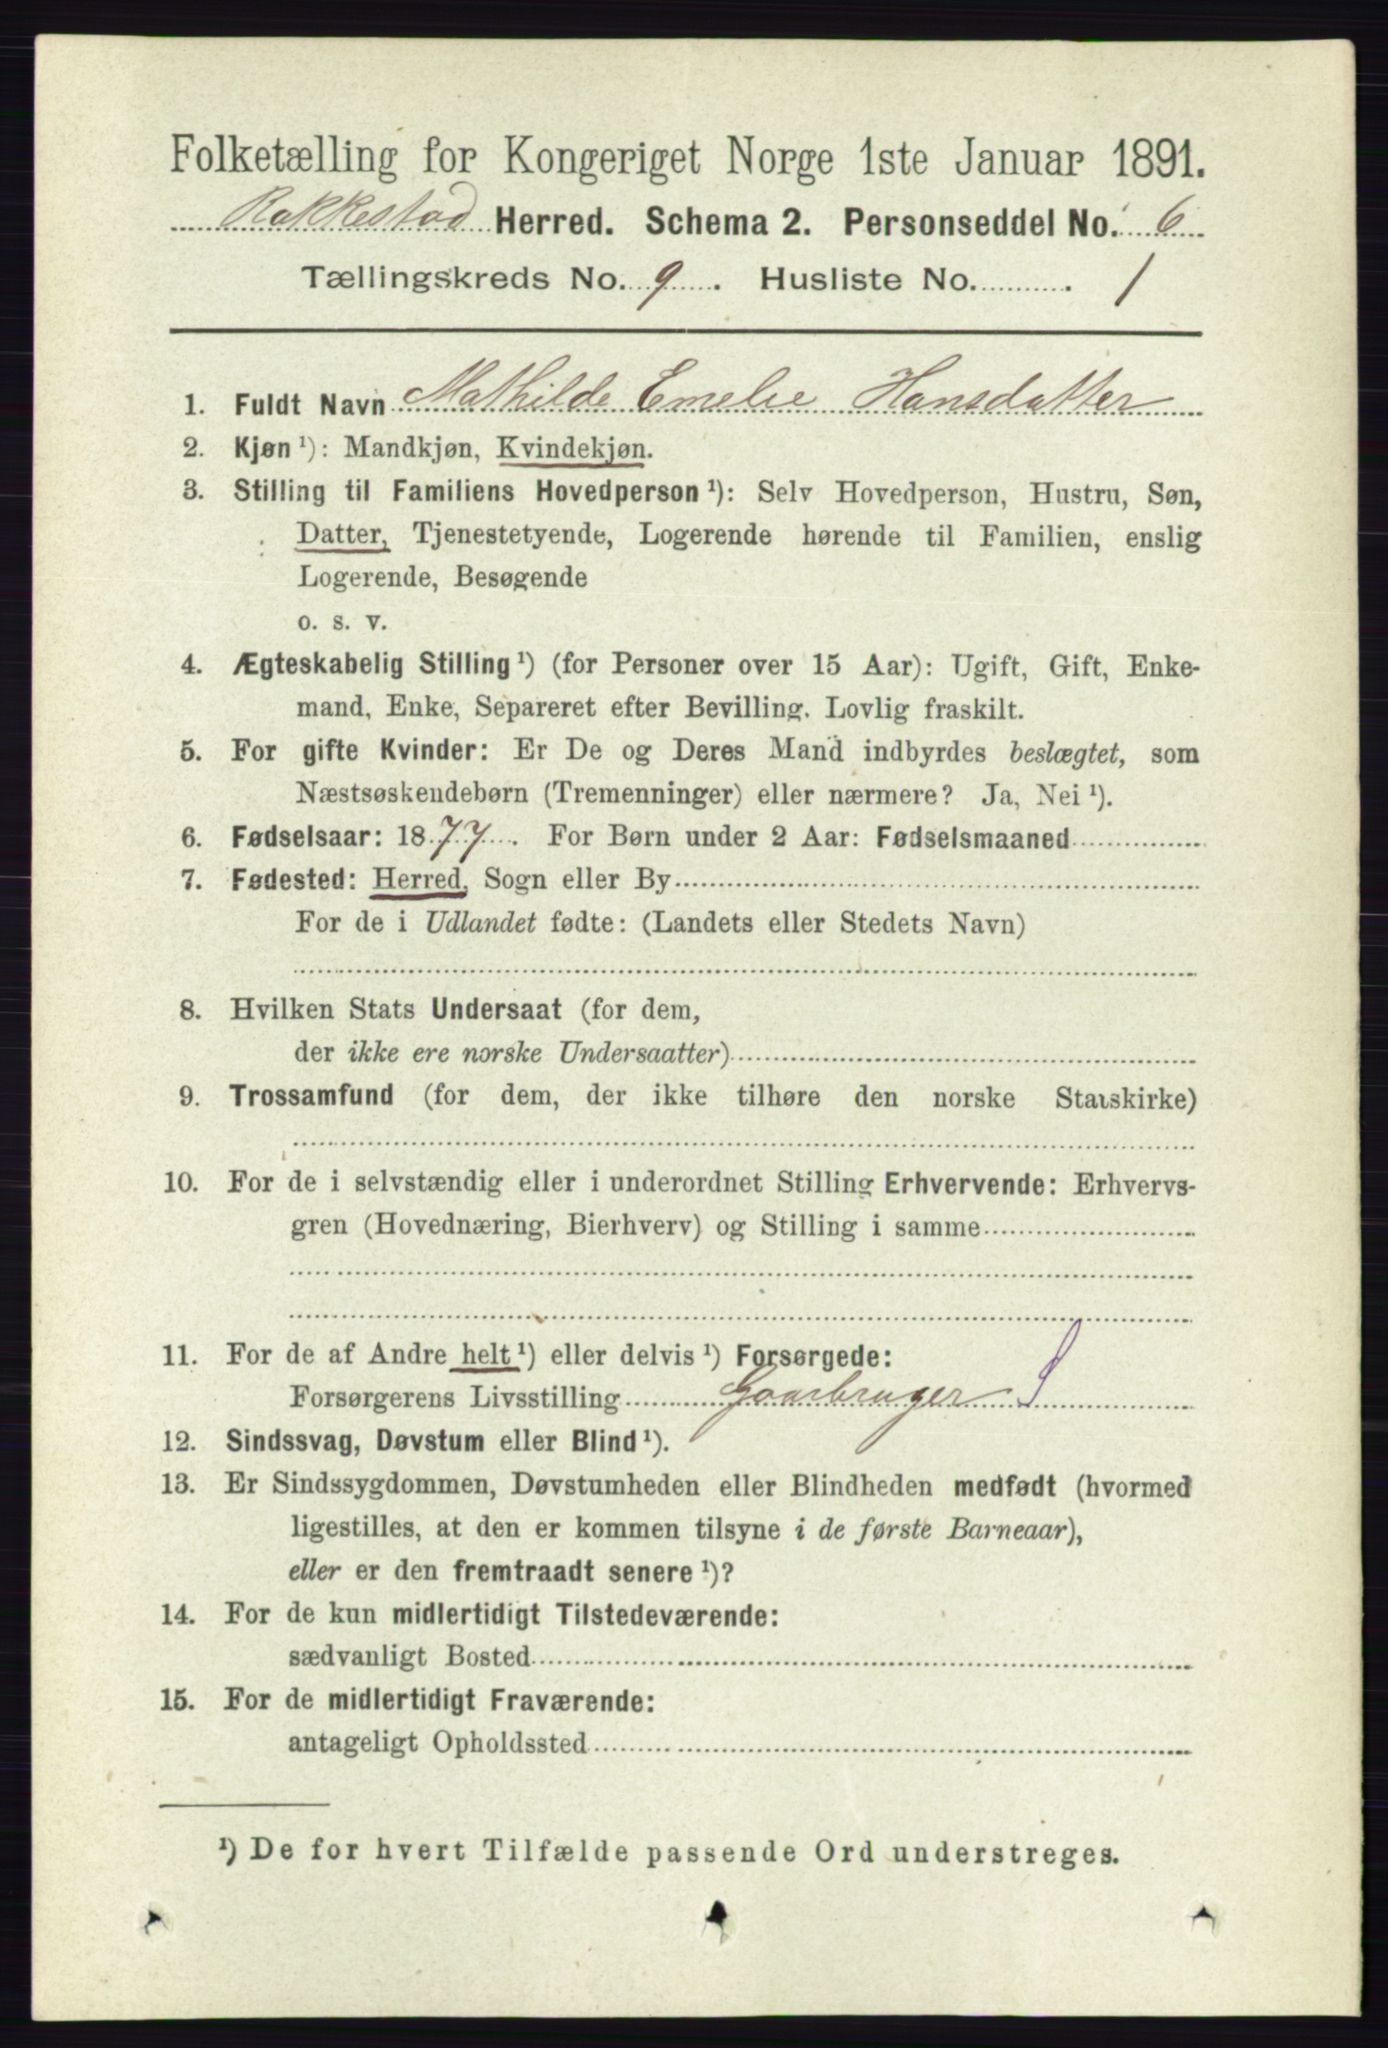 Folketælling for Kongeriget Norge 1ste Januar 1891.
Rakkestad Herred. Schema 2. Personseddel No. 6
Tællingskreds No. 9. Husliste No. 1
1. Fuldt Navn Mathilde Emelie Hansdatter
2. Kjøn ¹): Mandkjøn, Kvindekjøn.
3. Stilling til Familiens Hovedperson ¹): Selv Hovedperson, Hustru, Søn,
Datter, Tjenestetyende, Logerende hørende til Familien, enslig
Logerende, Besøgende
o. s. v.
4. Ægteskabelig Stilling ¹) (for Personer over 15 Aar): Ugift, Gift, Enke-
mand, Enke, Separeret efter Bevilling. Lovlig fraskilt.
5. For gifte Kvinder: Er De og Deres Mand indbyrdes beslægtet, som
Næstsøskendebørn (Tremenninger) eller nærmere? Ja, Nei ¹).
6. Fødselsaar: 1877. For Børn under 2 Aar: Fødselsmaaned
7. Fødested: Herred, Sogn eller By
For de i Udlandet fødte: (Landets eller Stedets Navn)
8. Hvilken Stats Undersaat (for dem,
der ikke ere norske Undersaatter)
9. Trossamfund (for dem, der ikke tilhøre den norske Statskirke)
10. For de i selvstændig eller i underordnet Stilling Erhvervende: Erhvervs-
gren (Hovednæring, Bierhverv) og Stilling i samme
11. For de af Andre helt ¹) eller delvis ¹) Forsørgede:
Forsørgerens Livsstilling Gaarbruger S
12. Sindssvag, Døvstum eller Blind ¹).
13. Er Sindssygdommen, Døvstumheden eller Blindheden medfødt (hvormed
ligestilles, at den er kommen tilsyne i de første Barneaar),
eller er den fremtraadt senere ¹)?
14. For de kun midlertidigt Tilstedeværende:
sædvanligt Bosted
15. For de midlertidigt Fraværende:
antageligt Opholdssted
¹) De for hvert Tilfælde passende Ord understreges.